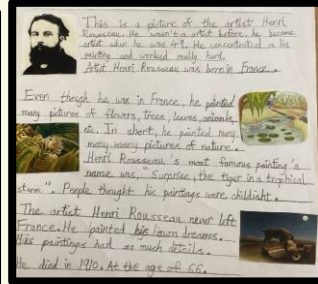 This is a picture of the artist Henri
Rousseau. He wasn't a artist before, he become
artist when he was 49. He concentrated on his
painting and worked really hard.
Artist Henri Rousseau was born in France.
Even though he was in France, he painted
many pictures of flowers, trees, leaves, animals,
etc. In short, he painted many,
many, many pictures of nature.
Henri Rousseau's most famous painting's
name was, "Surprise, the tiger in a trophical
storm". People thought his paintings were childisht.
The artist Henri Rousseau never left
France. He painted his own dreams.
His paintings had so much details.
He died in 1910. At the age of 66.